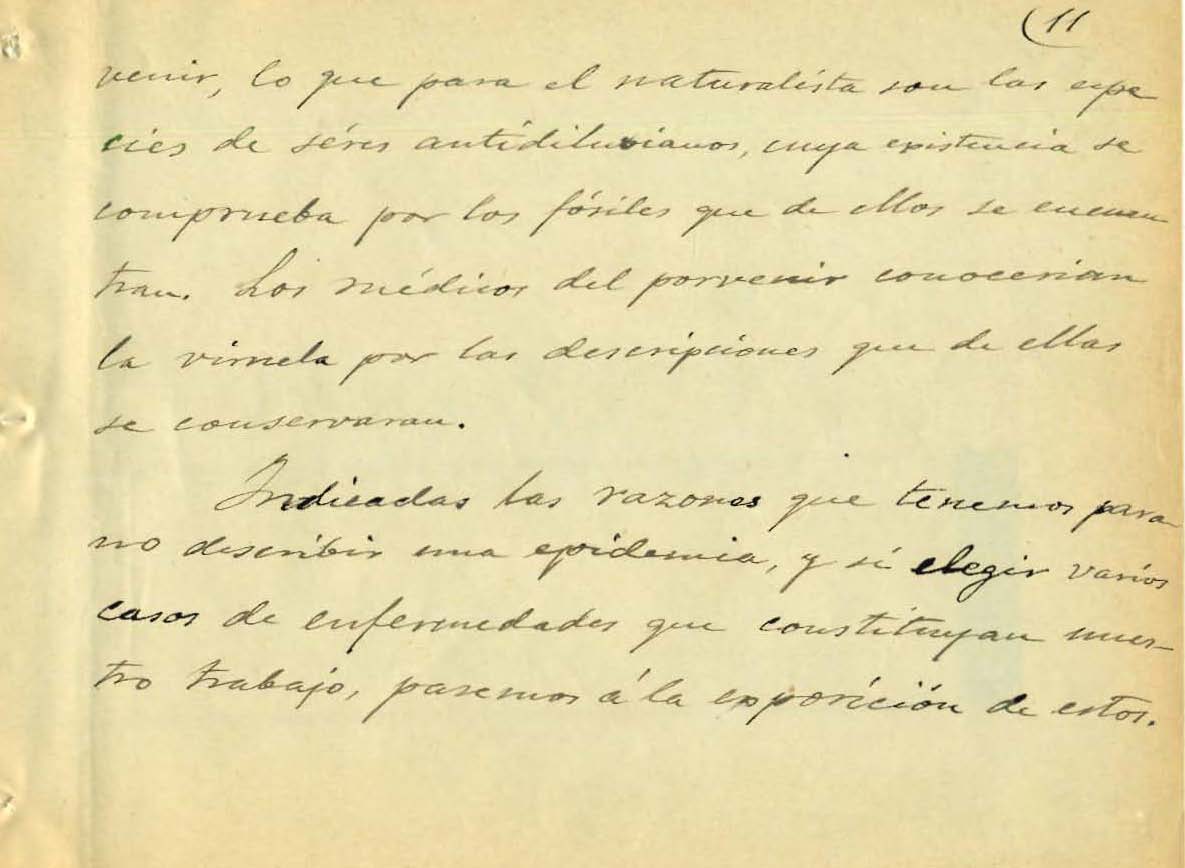 (11
venir, lo que para el naturalista son las espe
cies de séres antidiluvianos, cuya existencia se
comprueba por los fósiles que de ellos se encuen
tran. Los médicos del porvenir conocerian
la viruela por las descripciones que de ellas
se conservaran.
Indicadas las razones que tenemos para
no describir una epidemia, y sí elegir varios
casos de enfermedades que constituyan nues-
tro trabajo, pasemos á la exposición de estos.